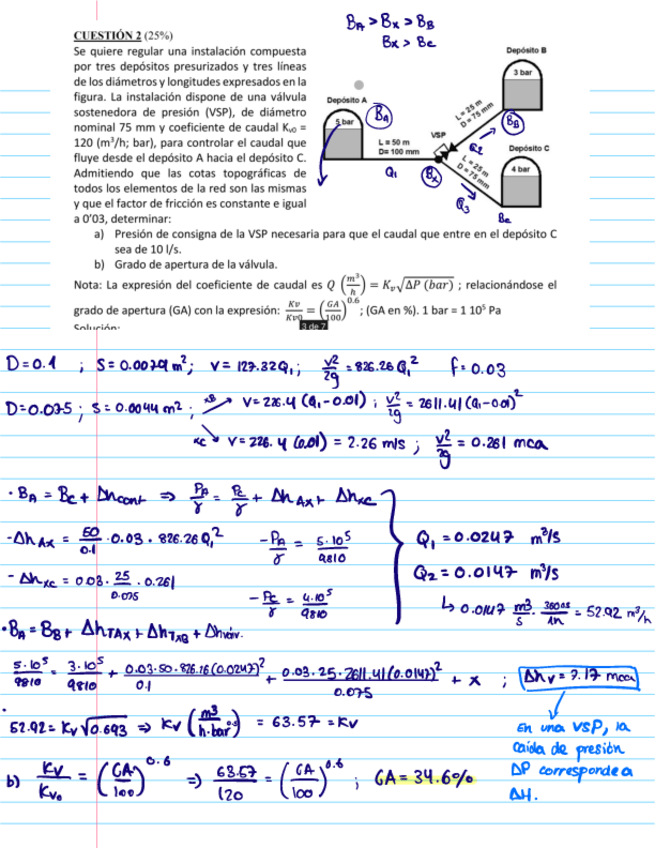 B_A > B_x > B_B
B_x > B_c
CUESTIÓN 2 (25%)
Se quiere regular una instalación compuesta
por tres depósitos presurizados y tres líneas
de los diámetros y longitudes expresados en la
figura. La instalación dispone de una válvula
sostenedora de presión (VSP), de diámetro
nominal 75 mm y coeficiente de caudal K_v0 =
120 (m³/h; bar), para controlar el caudal que
fluye desde el depósito A hacia el depósito C.
Admitiendo que las cotas topográficas de
todos los elementos de la red son las mismas
y que el factor de fricción es constante e igual
a 0'03, determinar:
Depósito B
3 bar
Depósito A
B_A
5 bar
L = 25 m
D = 75 mm
B_B
VSP
Q_2
L = 50 m
D= 100 mm
Depósito C
4 bar
Q_1
B_x
L = 25 m
D = 75 mm
Q_3
B_c
a) Presión de consigna de la VSP necesaria para que el caudal que entre en el depósito C
sea de 10 l/s.
b) Grado de apertura de la válvula.
Nota: La expresión del coeficiente de caudal es Q (m³/h) = K_v √ΔP (bar) ; relacionándose el
grado de apertura (GA) con la expresión: Kv/Kv0 = (GA/100)^0.6 ; (GA en %). 1 bar = 1 10⁵ Pa
Solución:
3 de 7
D = 0.1 ; S = 0.0079 m² ; V = 127.32 Q_1 ; V²/2g = 826.26 Q_1² f = 0.03
D = 0.075 ; S = 0.0044 m² ; xB V = 226.4 (Q_1 - 0.01) ; V²/2g = 2611.41 (Q_1 - 0.01)²
xc V = 226.4 (0.01) = 2.26 m/s ; V²/2g = 0.261 mca
· B_A = B_c + Δh cont ⇒ P_A/γ = P_c/γ + Δh_Ax + Δh_xc
- Δh_Ax = 50/0.1 · 0.03 · 826.26 Q_1² - P_A/γ = 5·10⁵/9810
Q_1 = 0.0247 m³/s
- Δh_xc = 0.03 · 25/0.075 · 0.261 - P_c/γ = 4·10⁵/9810
Q_2 = 0.0147 m³/s
↳ 0.0147 m³/s · 3600s/1h = 52.92 m³/h
· B_A = B_B + Δh_TAx + Δh_TxB + Δh válv.
5·10⁵/9810 = 3·10⁵/9810 + 0.03·50·826.26(0.0247)²/0.1 + 0.03·25·2611.41(0.0147)²/0.075 + x ; Δh_v = 7.17 mca
52.92 = K_v √0.693 ⇒ K_v (m³/h·bar^0.5) = 63.57 = K_v
En una VSP, la
caída de presión
ΔP corresponde a
ΔH.
b) K_v/K_v0 = (GA/100)^0.6 ⇒ 63.57/120 = (GA/100)^0.6 ; GA = 34.6%